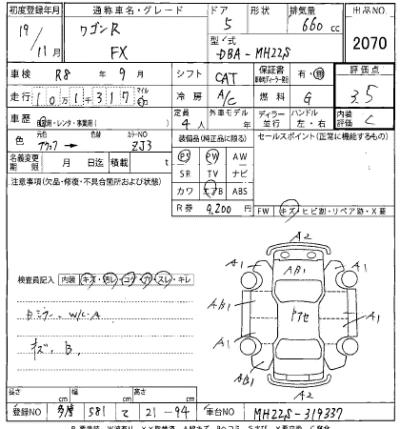 初度登録年月 通称車名・グレード ドア 形状 排気量 出品NO.
19年 11月 ワゴンR FX 5 660cc 2070
型式 DBA-MH22S
車検 R8年 9月 シフト CAT 保証書 有・無 評価点
走行 101317 冷房 A/C 燃料 G 3.5
車歴 自家用・レンタ・事業用( ) 定員 4人 外車モデル 年 ディーラー 並行 ハンドル 左・右 内装評価 C
色 元色 ブラック カラーNO ZJ3
装備品(純正品に限る) セールスポイント(正常に機能するもの)
名義変更期限 月 日迄 積載 t
PS PW AW
SR TV ナビ
カワ エアB ABS
注意事項(欠品・修復・不具合箇所および状態)
R券 9,200円
FW キズ・ヒビ割・リペア跡・X要
検査員記入 内装 キズ・汚レ・コゲ・穴・スレ・キレ
W/C・A
キズ、B.
A2
A1 AB1 A1
AB1 A1
A1 A1
AB1 A1
A2
長さ cm 幅 cm 高さ cm
登録NO 多摩 581 て 21-94 車台NO MH22S-319337